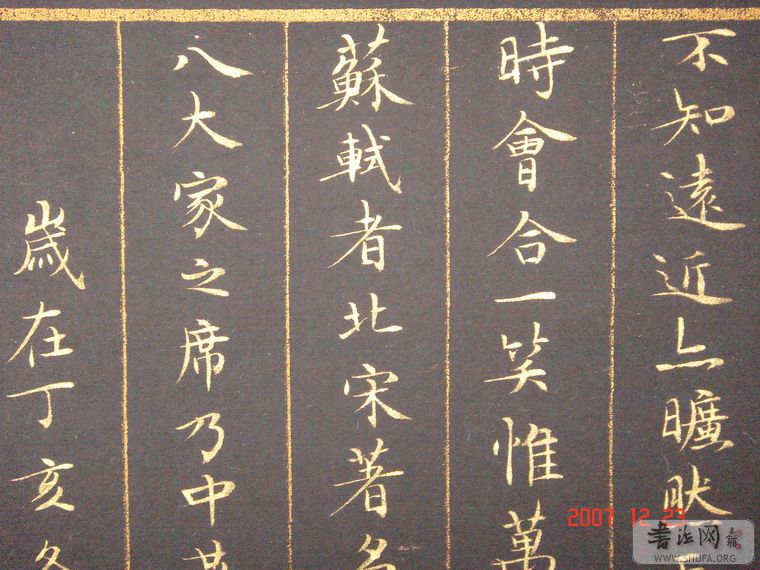 不知遠近亦曠然
時會合一笑惟萬
蘇軾者北宋著名
八大家之席乃中
歲在丁亥冬
2007 12 23
書法网
WWW.SHUFA.ORG